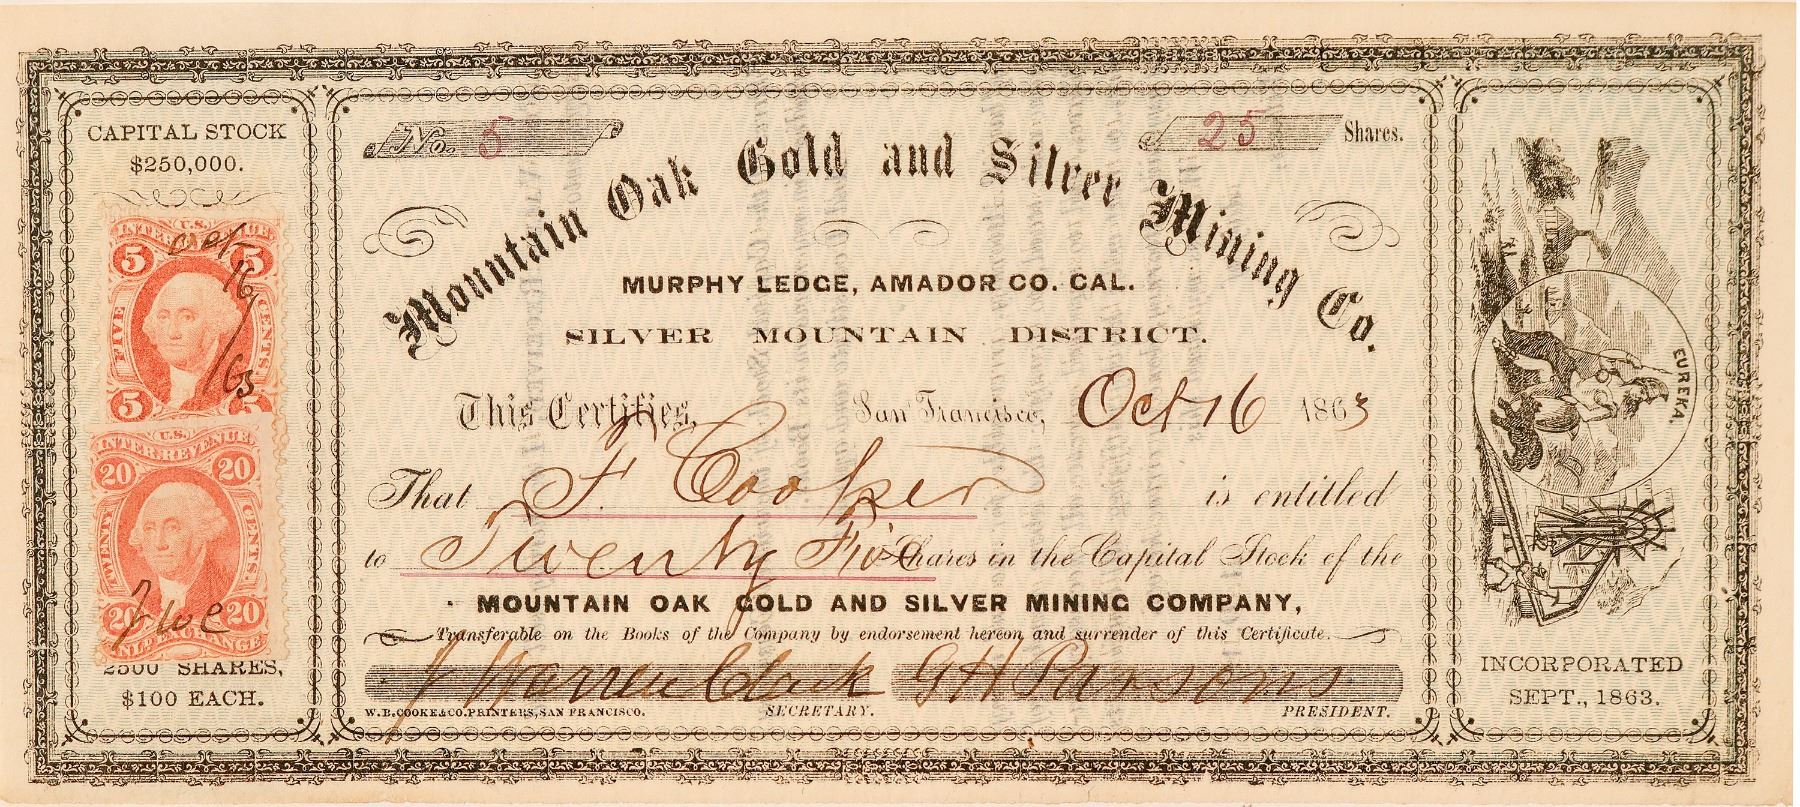 CAPITAL STOCK
$250,000.
U.S.
INTER. REVENUE
5 5
oct 16/63
FIVE CENTS
5 5
U.S.
INTER. REVENUE
20 20
TWENTY CENTS.
JWC
20 20
INL. EXCHANGE
2500 SHARES,
$100 EACH.
No. 5
25 Shares.
Mountain Oak Gold and Silver Mining Co.
MURPHY LEDGE, AMADOR CO. CAL.
SILVER MOUNTAIN DISTRICT.
This Certifies, San Francisco, Oct 16 1863
That F. Cooker is entitled
to Twenty Five Shares in the Capital Stock of the
MOUNTAIN OAK GOLD AND SILVER MINING COMPANY,
Transferable on the Books of the Company by endorsement hereon and surrender of this Certificate.
J Warren Clark G H Parsons
W.B.COOKE&CO.PRINTERS,SAN FRANCISCO. SECRETARY. PRESIDENT.
EUREKA.
INCORPORATED
SEPT., 1863.